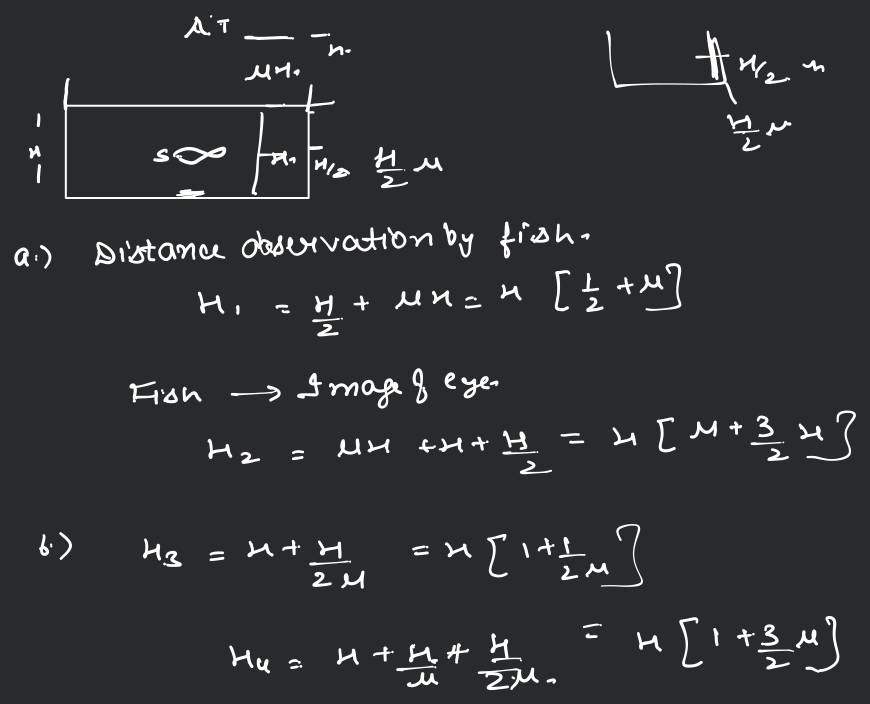 AiT
h.
μH.
H/2 n
H/2 μ
H
S H1 H/2 H/2 μ
a.) Distance observation by fish.
H1 = H/2 + μH = H [1/2 + μ]
Fish → Image of eye.
H2 = μH + H + H/2 = H [μ + 3/2 H]
b.) H3 = H + H/2μ = H [1 + 1/2 μ]
H4 = H + H/μ + H/2μ. = H [1 + 3/2 μ]